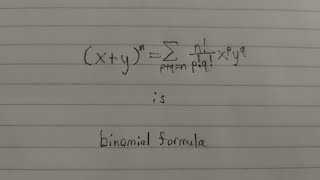 (x+y)ⁿ = ∑_{p+q=n} n!/p!q! xᵖy^q
is
binomial formula